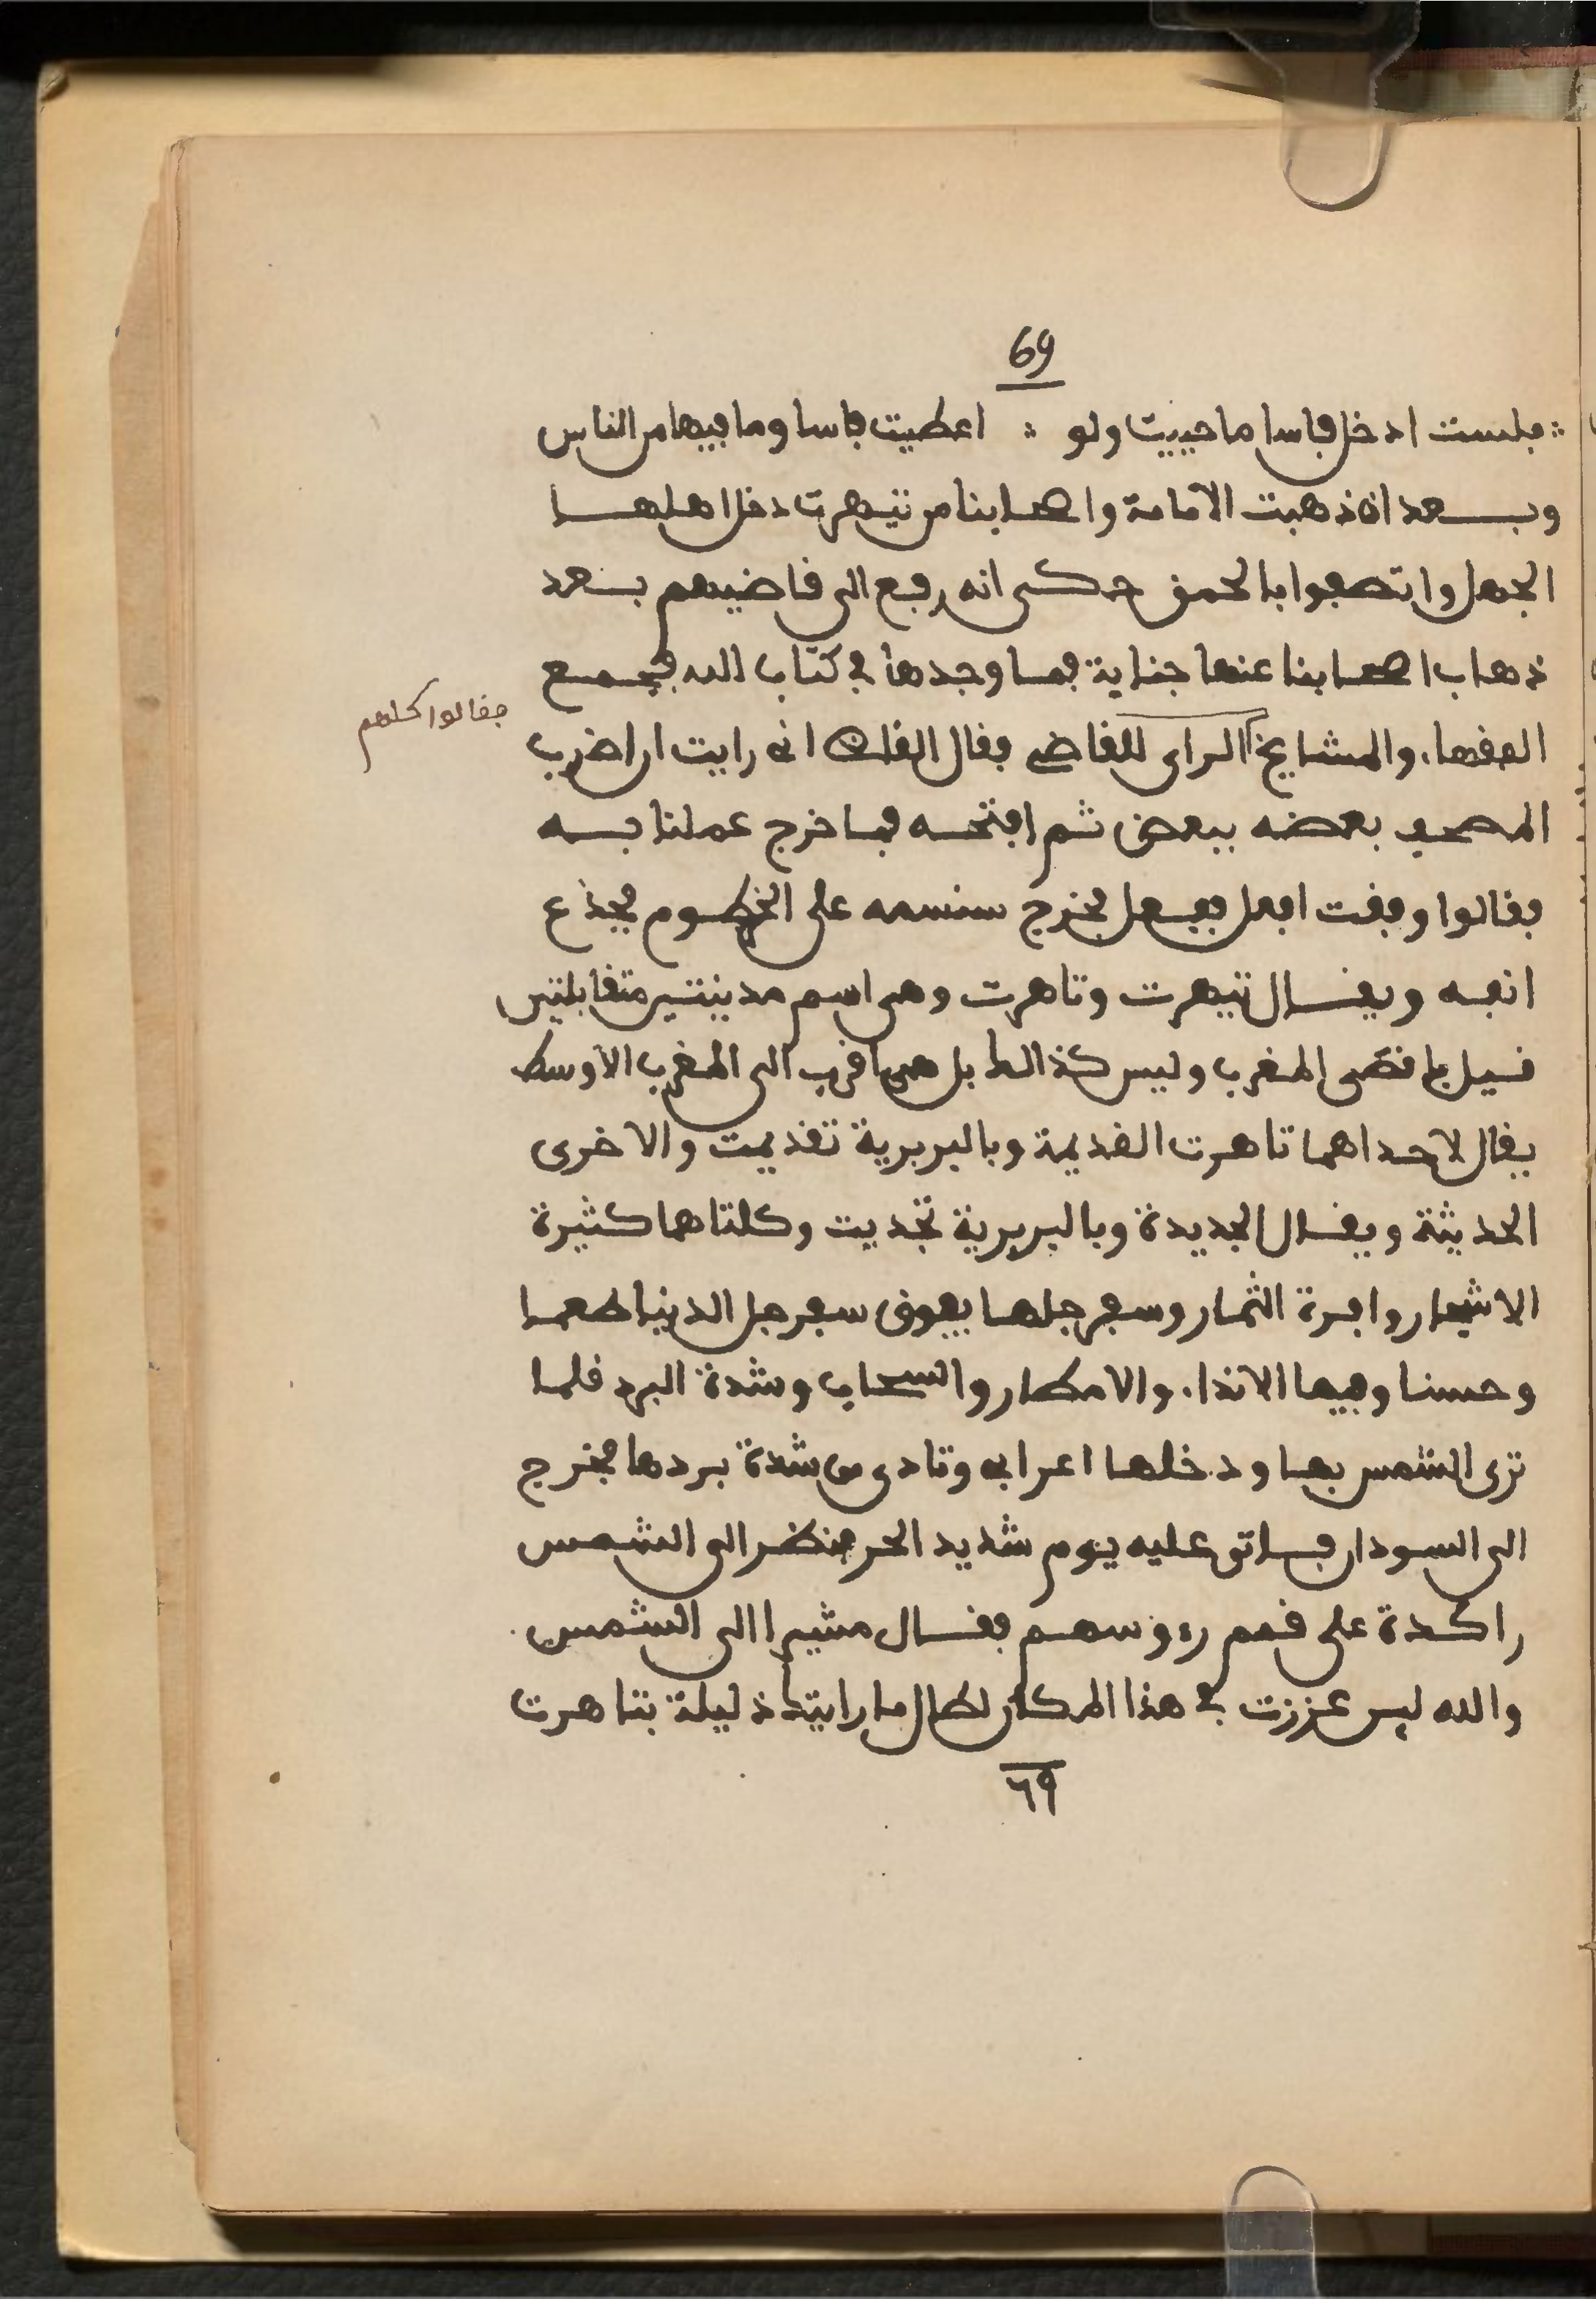 69
∴ فلست ادخل فاسا ما حييت ولو ∴ اعطيت فاسا وما فيها من الناس
وبعد ان ذهبت الامامة واصحابنا من تيهرت دخل اهلها
الجهل واتصفوا بالحمق حكى انه رفع الى قاضيهم بعد
ذهاب اصحابنا عنها جناية فما وجدها في كتاب الله فجمع
الفقهاء والمشايخ الراى للقاضي فقال القاضي اني رايت ان اضرب
فقالوا كلهم
المصحف بعضه ببعض ثم افتحه فما خرج عملنا به
فقالوا وفقت افعل ففعل فخرج سنسمه على الخرطوم فجذع
انفه ويقال تيهرت وتاهرت وهي اسم مدينتين متقابلتين
قيل باقصى المغرب وليس كذالك بل هي اقرب الى المغرب الاوسط
يقال لاحداهما تاهرت القديمة وبالبربرية تقديمت والاخرى
الحديثة ويقال الجديدة وبالبربرية تجديت وكلتاهما كثيرة
الاشجار وافرة الثمار وسفرجلها يفوق سفرجل الدنيا طعما
وحسنا وفيها الانداء والامطار والسحاب وشدة البرد قلما
ترى الشمس بها ودخلها اعرابي وتاذى من شدة بردها فخرج
الى السودان فاتى عليه يوم شديد الحر فنظر الى الشمس
راكدة على قمم رءوسهم فقال مشيرا الى الشمس
والله لين عززت في هذا المكان لطال ما رايتك ذليلة بتاهرت
٦٩